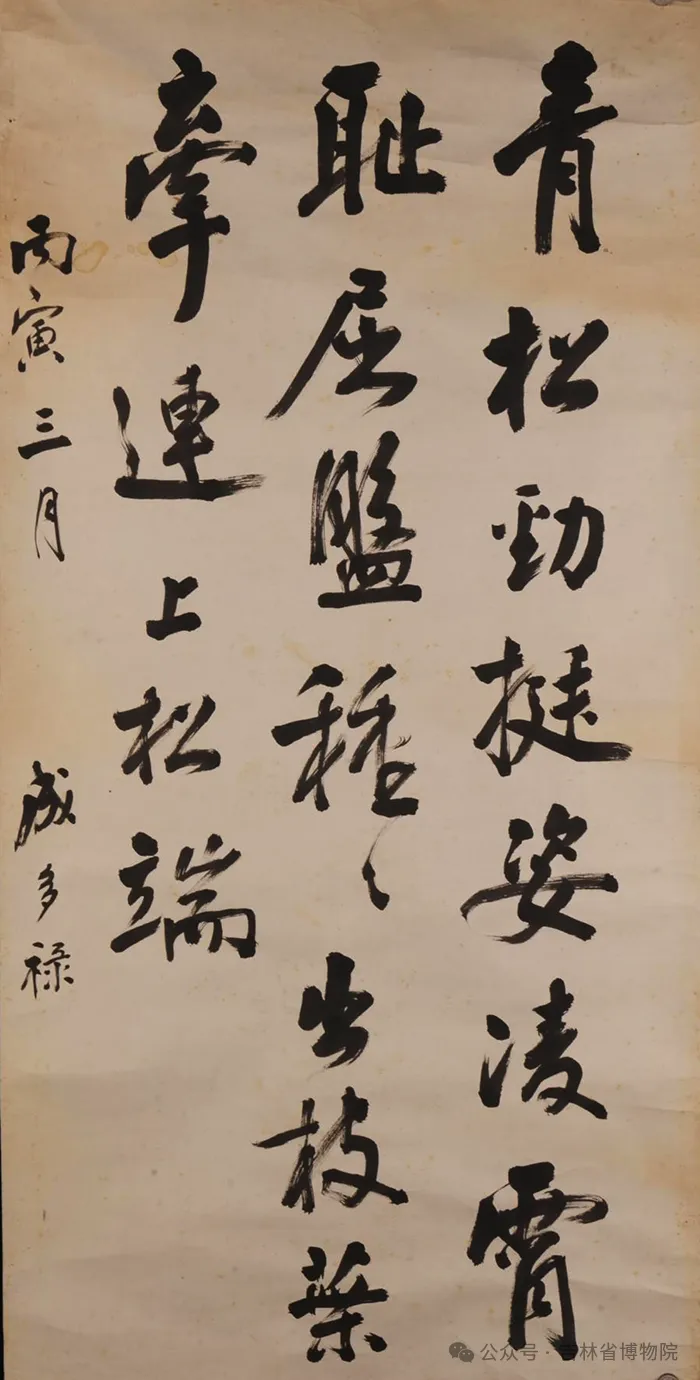 青松勁挺姿凌霄
耻屈盤種々出枝葉
牽連上松端
丙寅三月 成多禄
公众号 · 吉林省博物院